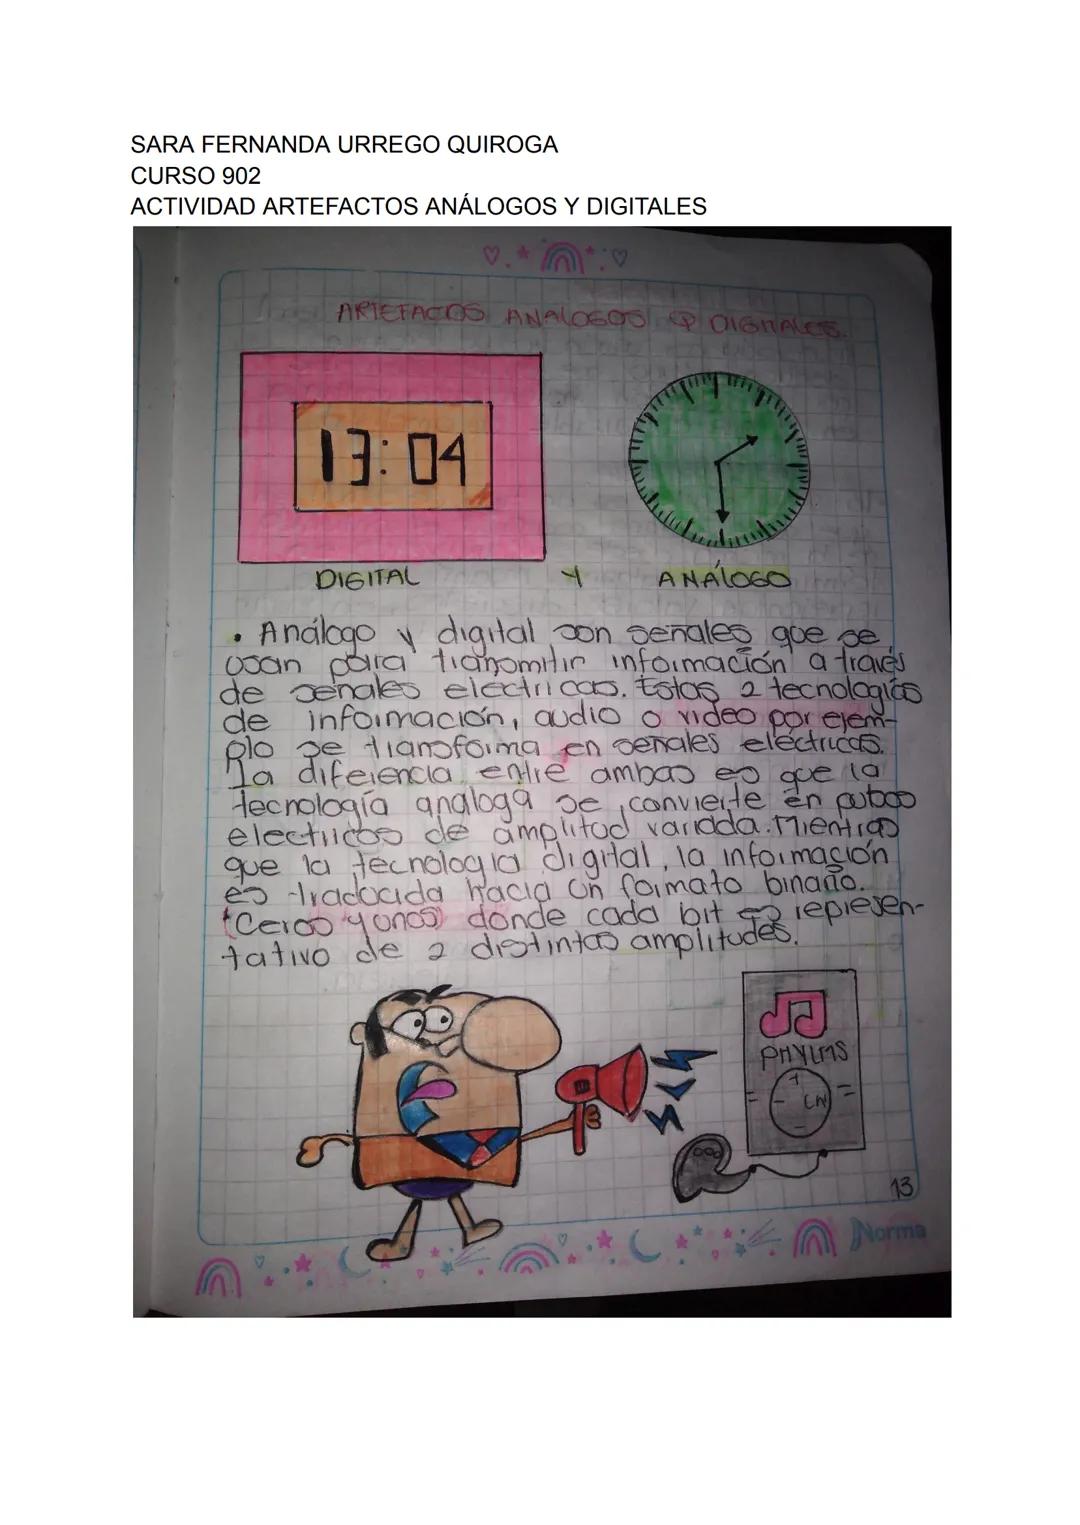 SARA FERNANDA URREGO QUIROGA
CURSO 902
ACTIVIDAD ARTEFACTOS ANÁLOGOS Y DIGITALES
ARTEFACTOS ANALOGOS Y DIGITALES.
13:04
DIGITAL Y ANÁLOGO
• Análogo y digital son señales que se
usan para transmitir información a través
de señales eléctricas. Estas 2 tecnologías
de información, audio o video por ejem-
plo se transforma en señales eléctricas.
La diferencia entre ambas es que la
tecnología análoga se convierte en pulsos
electricos de amplitud variada. Mientras
que la tecnologia digital, la información
es traducida hacia un formato binario.
(Ceros y unos) donde cada bit es represen-
tativo de 2 distintas amplitudes.
PHYLMS
13
Norma